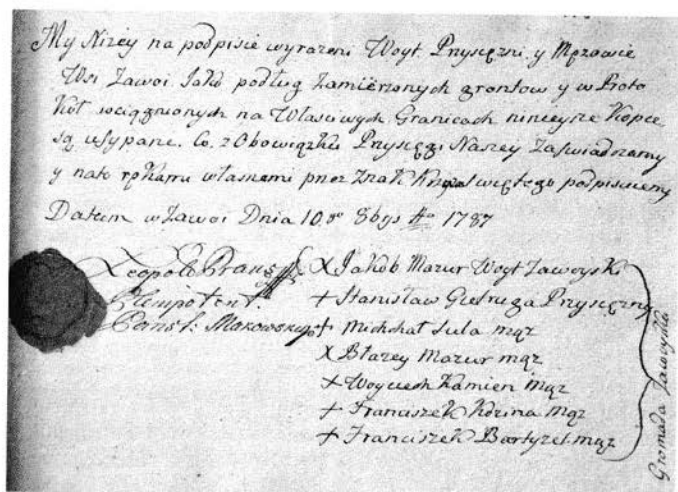 My Niżey na podpisie wyrażeni Woyt. Przysężni y Mężowie
Wsi Zawoi Jako podług Zamierzonych grontow y w Proto
Koł wciągnionych na Właściwych Granicach ninieysze Kopce
są usypane. Co z Obowiązku Przysęgi Naszey Zaświadzamy
y na to rękamu własnemi przez Znak Krzyża Świętego podpisuiemy
Datum w Zawoi Dnia 10. 8bris Ao 1787
Leopold
Plenipotent.
Państ. Makowskiego
X Jakób Mazur Woyt Zawoyski
+ Stanisław Gietruga Przysężny
+ Michał Sula mąz
X Błazey Mazur mąz
+ Woyciech Kamien mąz
+ Franciszek Kozina mąz
+ Franciszek Bartyzel mąz
Gromada Zawoyska